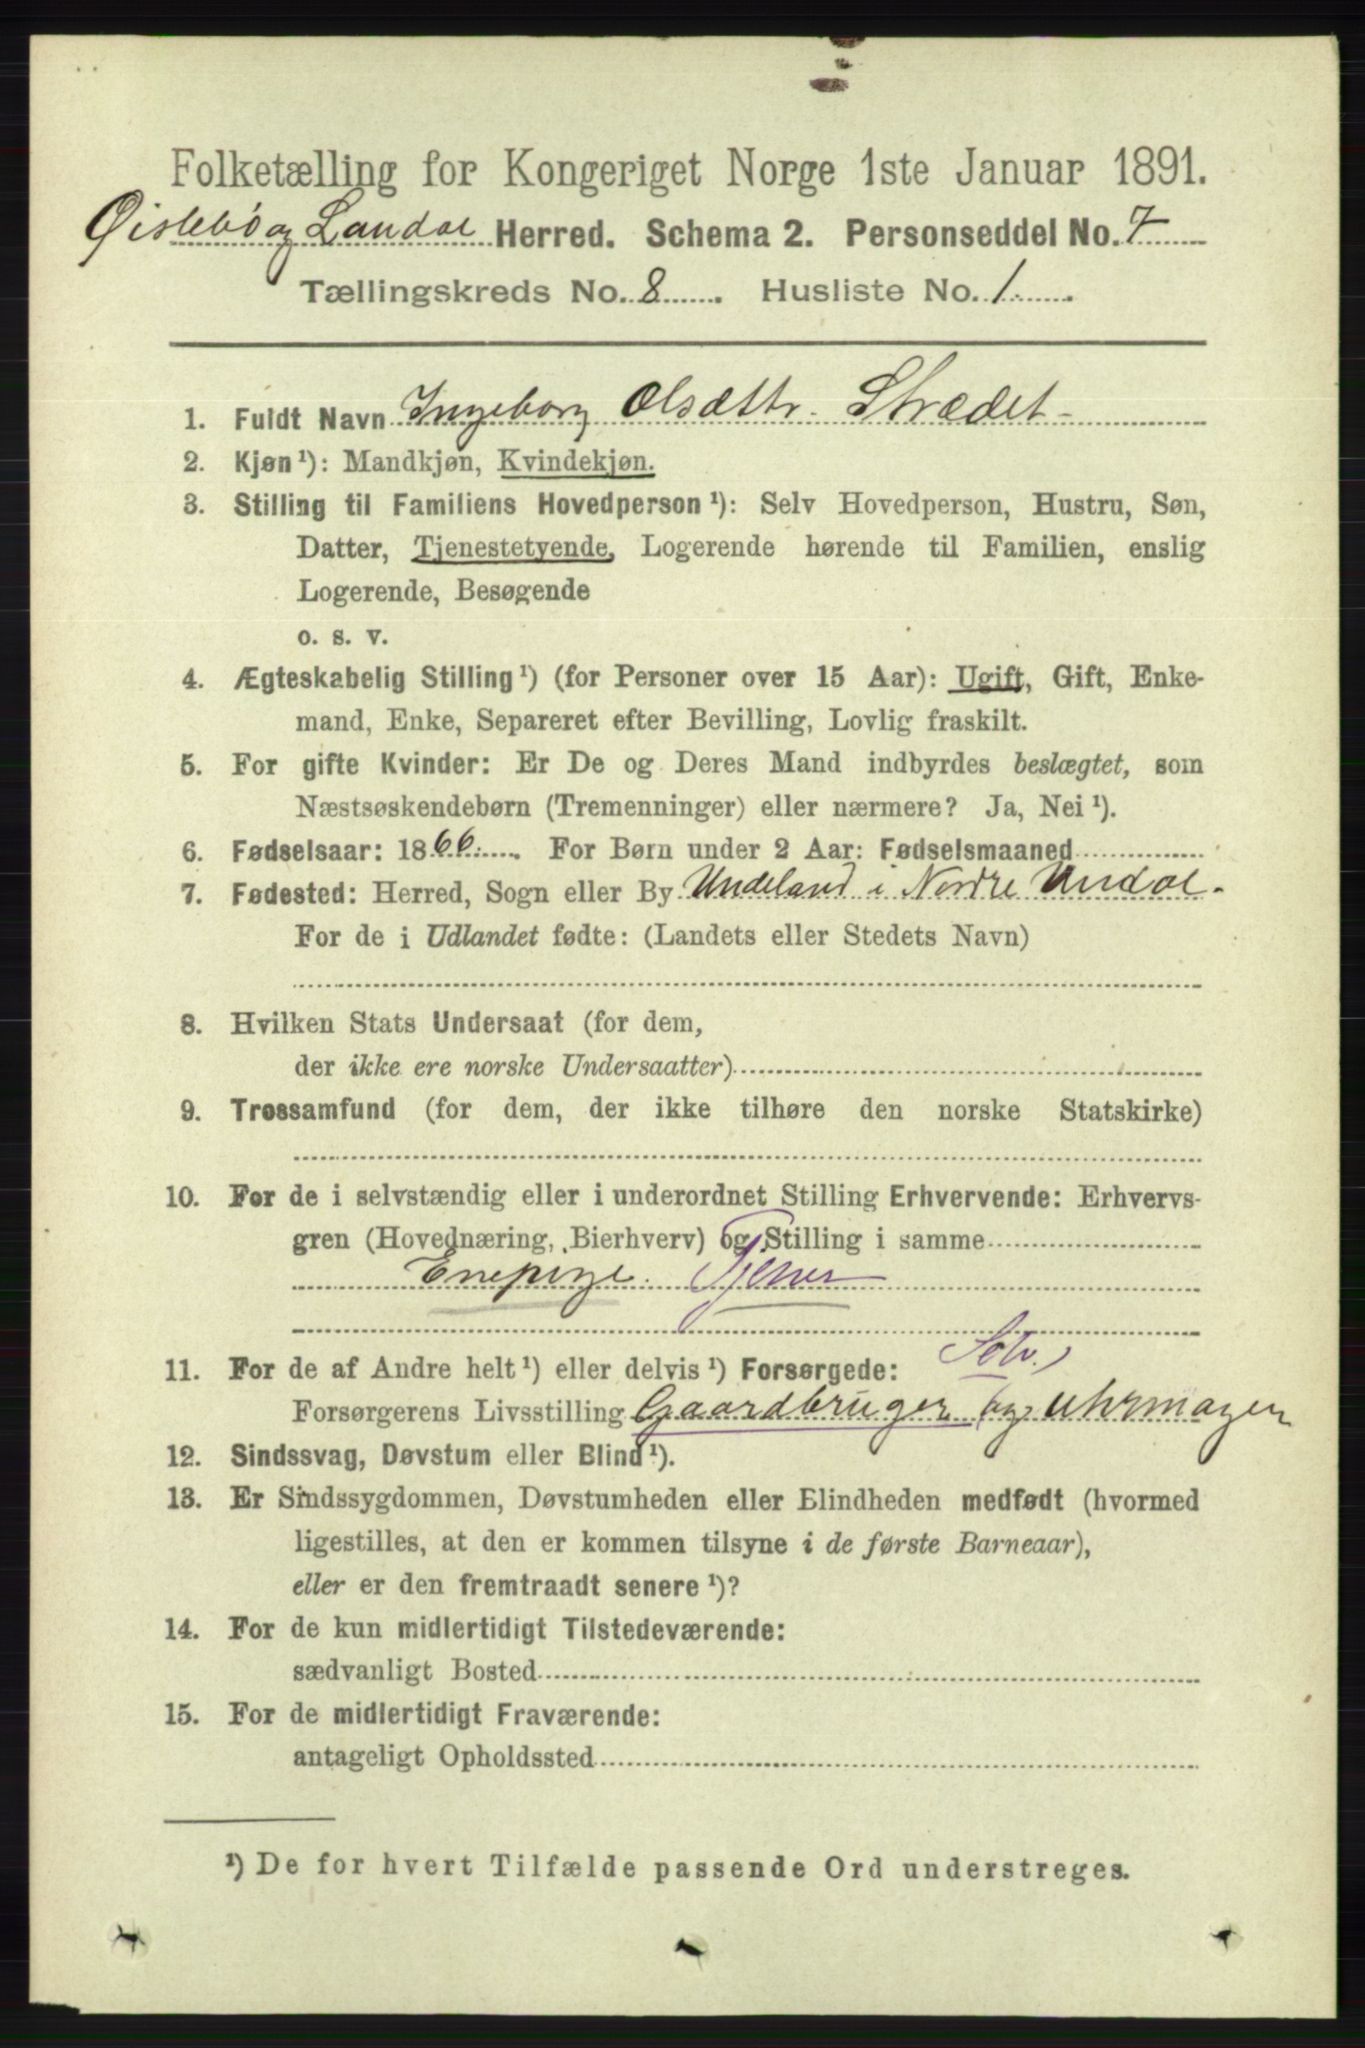 Folketælling for Kongeriget Norge 1ste Januar 1891.
Øislebø og Laudal Herred. Schema 2. Personseddel No. 7
Tællingskreds No. 8. Husliste No. 1.
1. Fuldt Navn Ingeborg Olsdttr. Strædet
2. Kjøn ¹): Mandkjøn, Kvindekjøn.
3. Stilling til Familiens Hovedperson ¹): Selv Hovedperson, Hustru, Søn,
Datter, Tjenestetyende, Logerende hørende til Familien, enslig
Logerende, Besøgende
o. s. v.
4. Ægteskabelig Stilling ¹) (for Personer over 15 Aar): Ugift, Gift, Enke-
mand, Enke, Separeret efter Bevilling, Lovlig fraskilt.
5. For gifte Kvinder: Er De og Deres Mand indbyrdes beslægtet, som
Næstsøskendebørn (Tremenninger) eller nærmere? Ja, Nei ¹).
6. Fødselsaar: 1866. For Børn under 2 Aar: Fødselsmaaned
7. Fødested: Herred, Sogn eller By Undeland i Nordre Undal.
For de i Udlandet fødte: (Landets eller Stedets Navn)
8. Hvilken Stats Undersaat (for dem,
der ikke ere norske Undersaatter)
9. Trossamfund (for dem, der ikke tilhøre den norske Statskirke)
10. For de i selvstændig eller i underordnet Stilling Erhvervende: Erhvervs-
gren (Hovednæring, Bierhverv) og Stilling i samme
Enepige. Tjener
11. For de af Andre helt ¹) eller delvis ¹) Forsørgede: Selv.)
Forsørgerens Livsstilling Gaardbruger (og uhrmager
12. Sindssvag, Døvstum eller Blind ¹).
13. Er Sindssygdommen, Døvstumheden eller Blindheden medfødt (hvormed
ligestilles, at den er kommen tilsyne i de første Barneaar),
eller er den fremtraadt senere ¹)?
14. For de kun midlertidigt Tilstedeværende:
sædvanligt Bosted
15. For de midlertidigt Fraværende:
antageligt Opholdssted
¹) De for hvert Tilfælde passende Ord understreges.